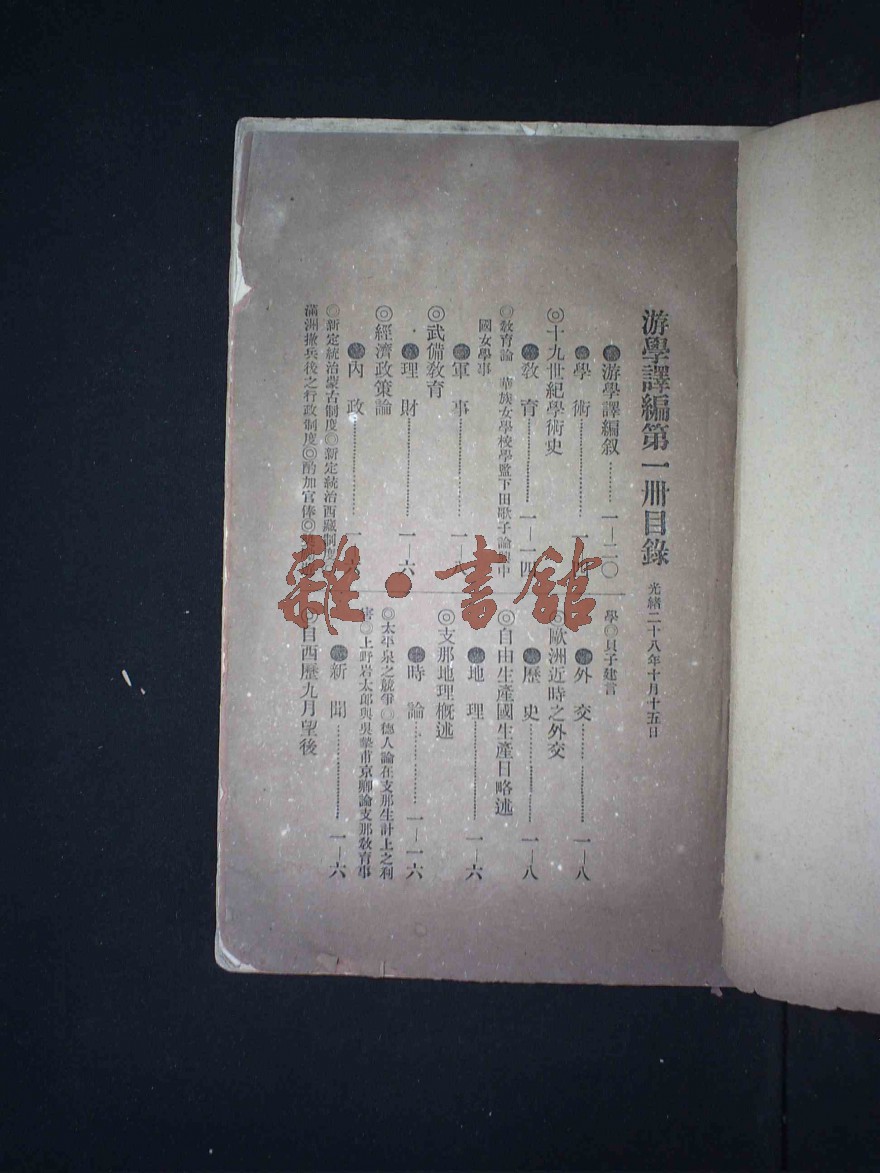 游學譯編第一册目錄
光緒二十八年十月十五日
游學譯編叙 一—二〇
學術 一
◎十九世紀學術史
教育 一—一四
◎教育論 華族女學校學監下田歌子論 中
國女學事
軍事 一
◎武備教育
理財 一—六
◎經濟政策論
內政 一
◎新定統治蒙古制度◎新定統治西藏制度
滿洲撤兵後之行政制度◎酌加官俸◎
學◎貝子建言
外交 一—八
◎歐洲近時之外交
歷史 一—八
◎自由生產國生產日略述
地理 一—六
◎支那地理概述
時論 一—一六
◎太平泉之競爭◎德人論在支那生計上之利
害◎上野岩太郎與吳摯甫京卿論支那教育事
新聞 一—六
◎自西歷九月望後
雜·書館